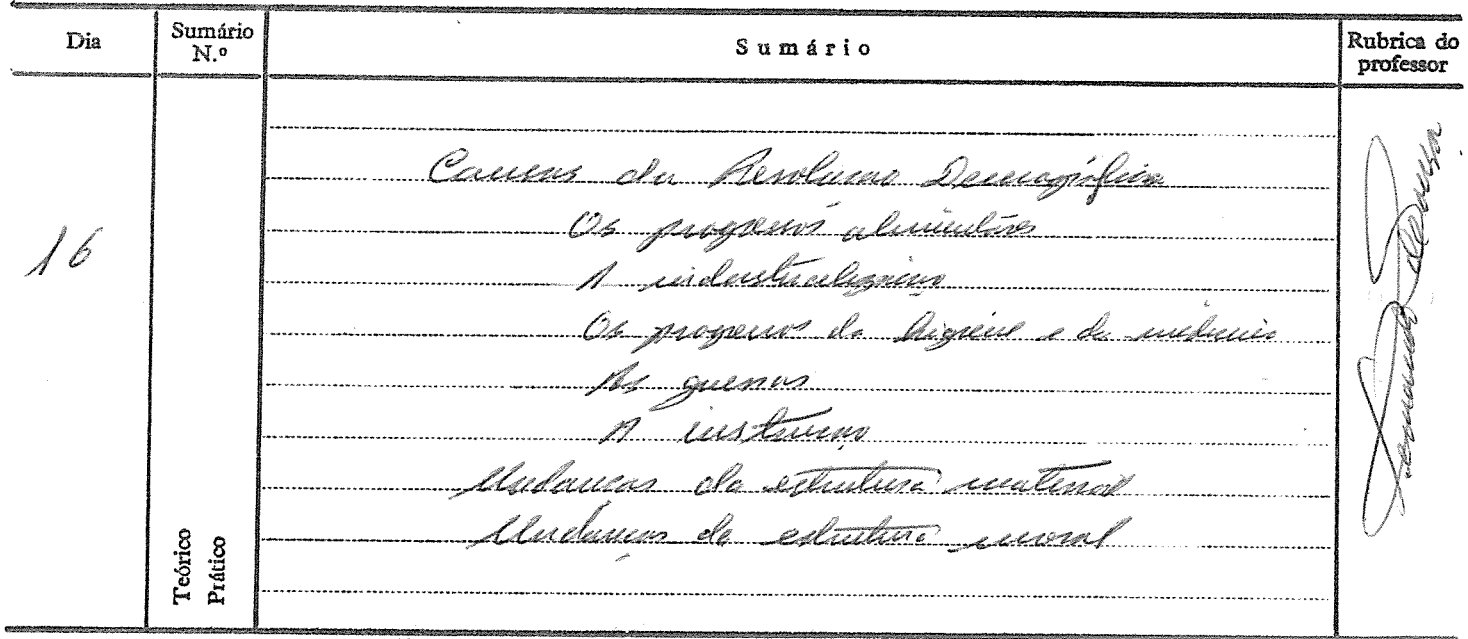 Dia
Sumário N.º
Sumário
Rubrica do professor
16
Causas da Revolução Demográfica
Os progressos alimentares
A industrialização
Os progressos da higiene e da medicina
As guerras
A instrução
Mudanças da estrutura material
Mudanças da estrutura moral
Teórico
Prático